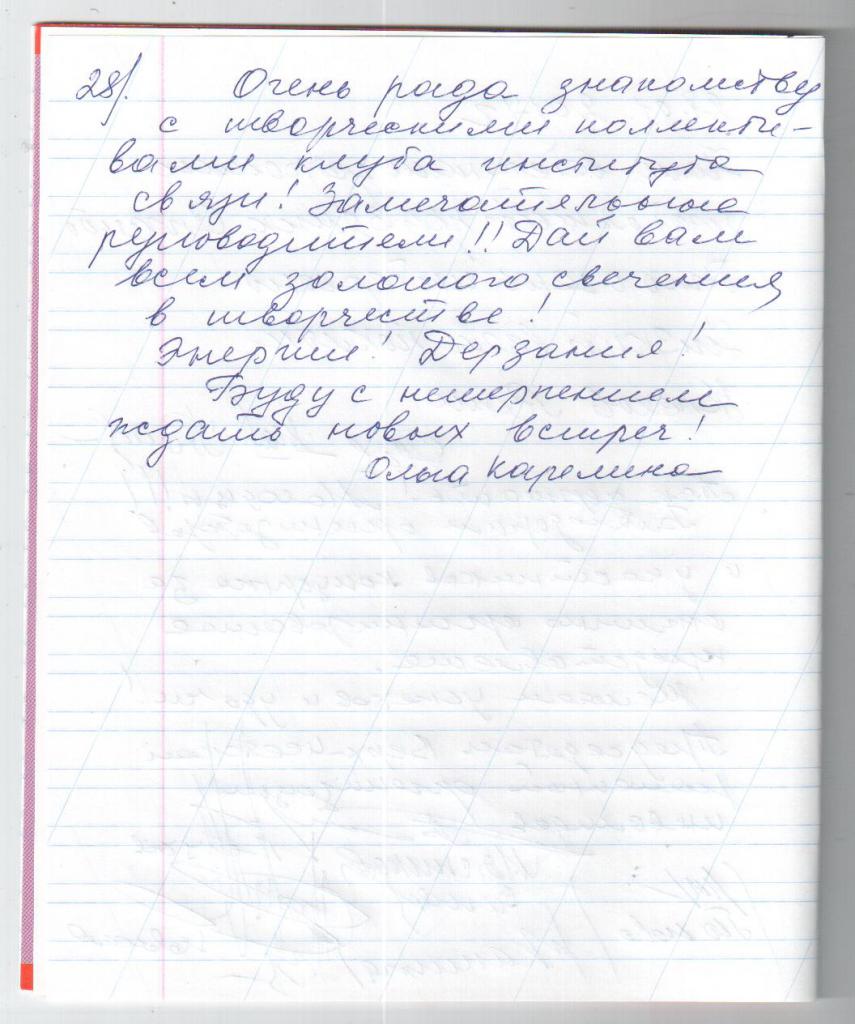 28). Очень рада знакомству
с творческими коллекти-
вами клуба института
связи! Замечательные
руководители!! Дай вам
всем золотого свечения
в творчестве!
Энергии! Дерзания!
Буду с нетерпением
ждать новых встреч!
Ольга Карелина